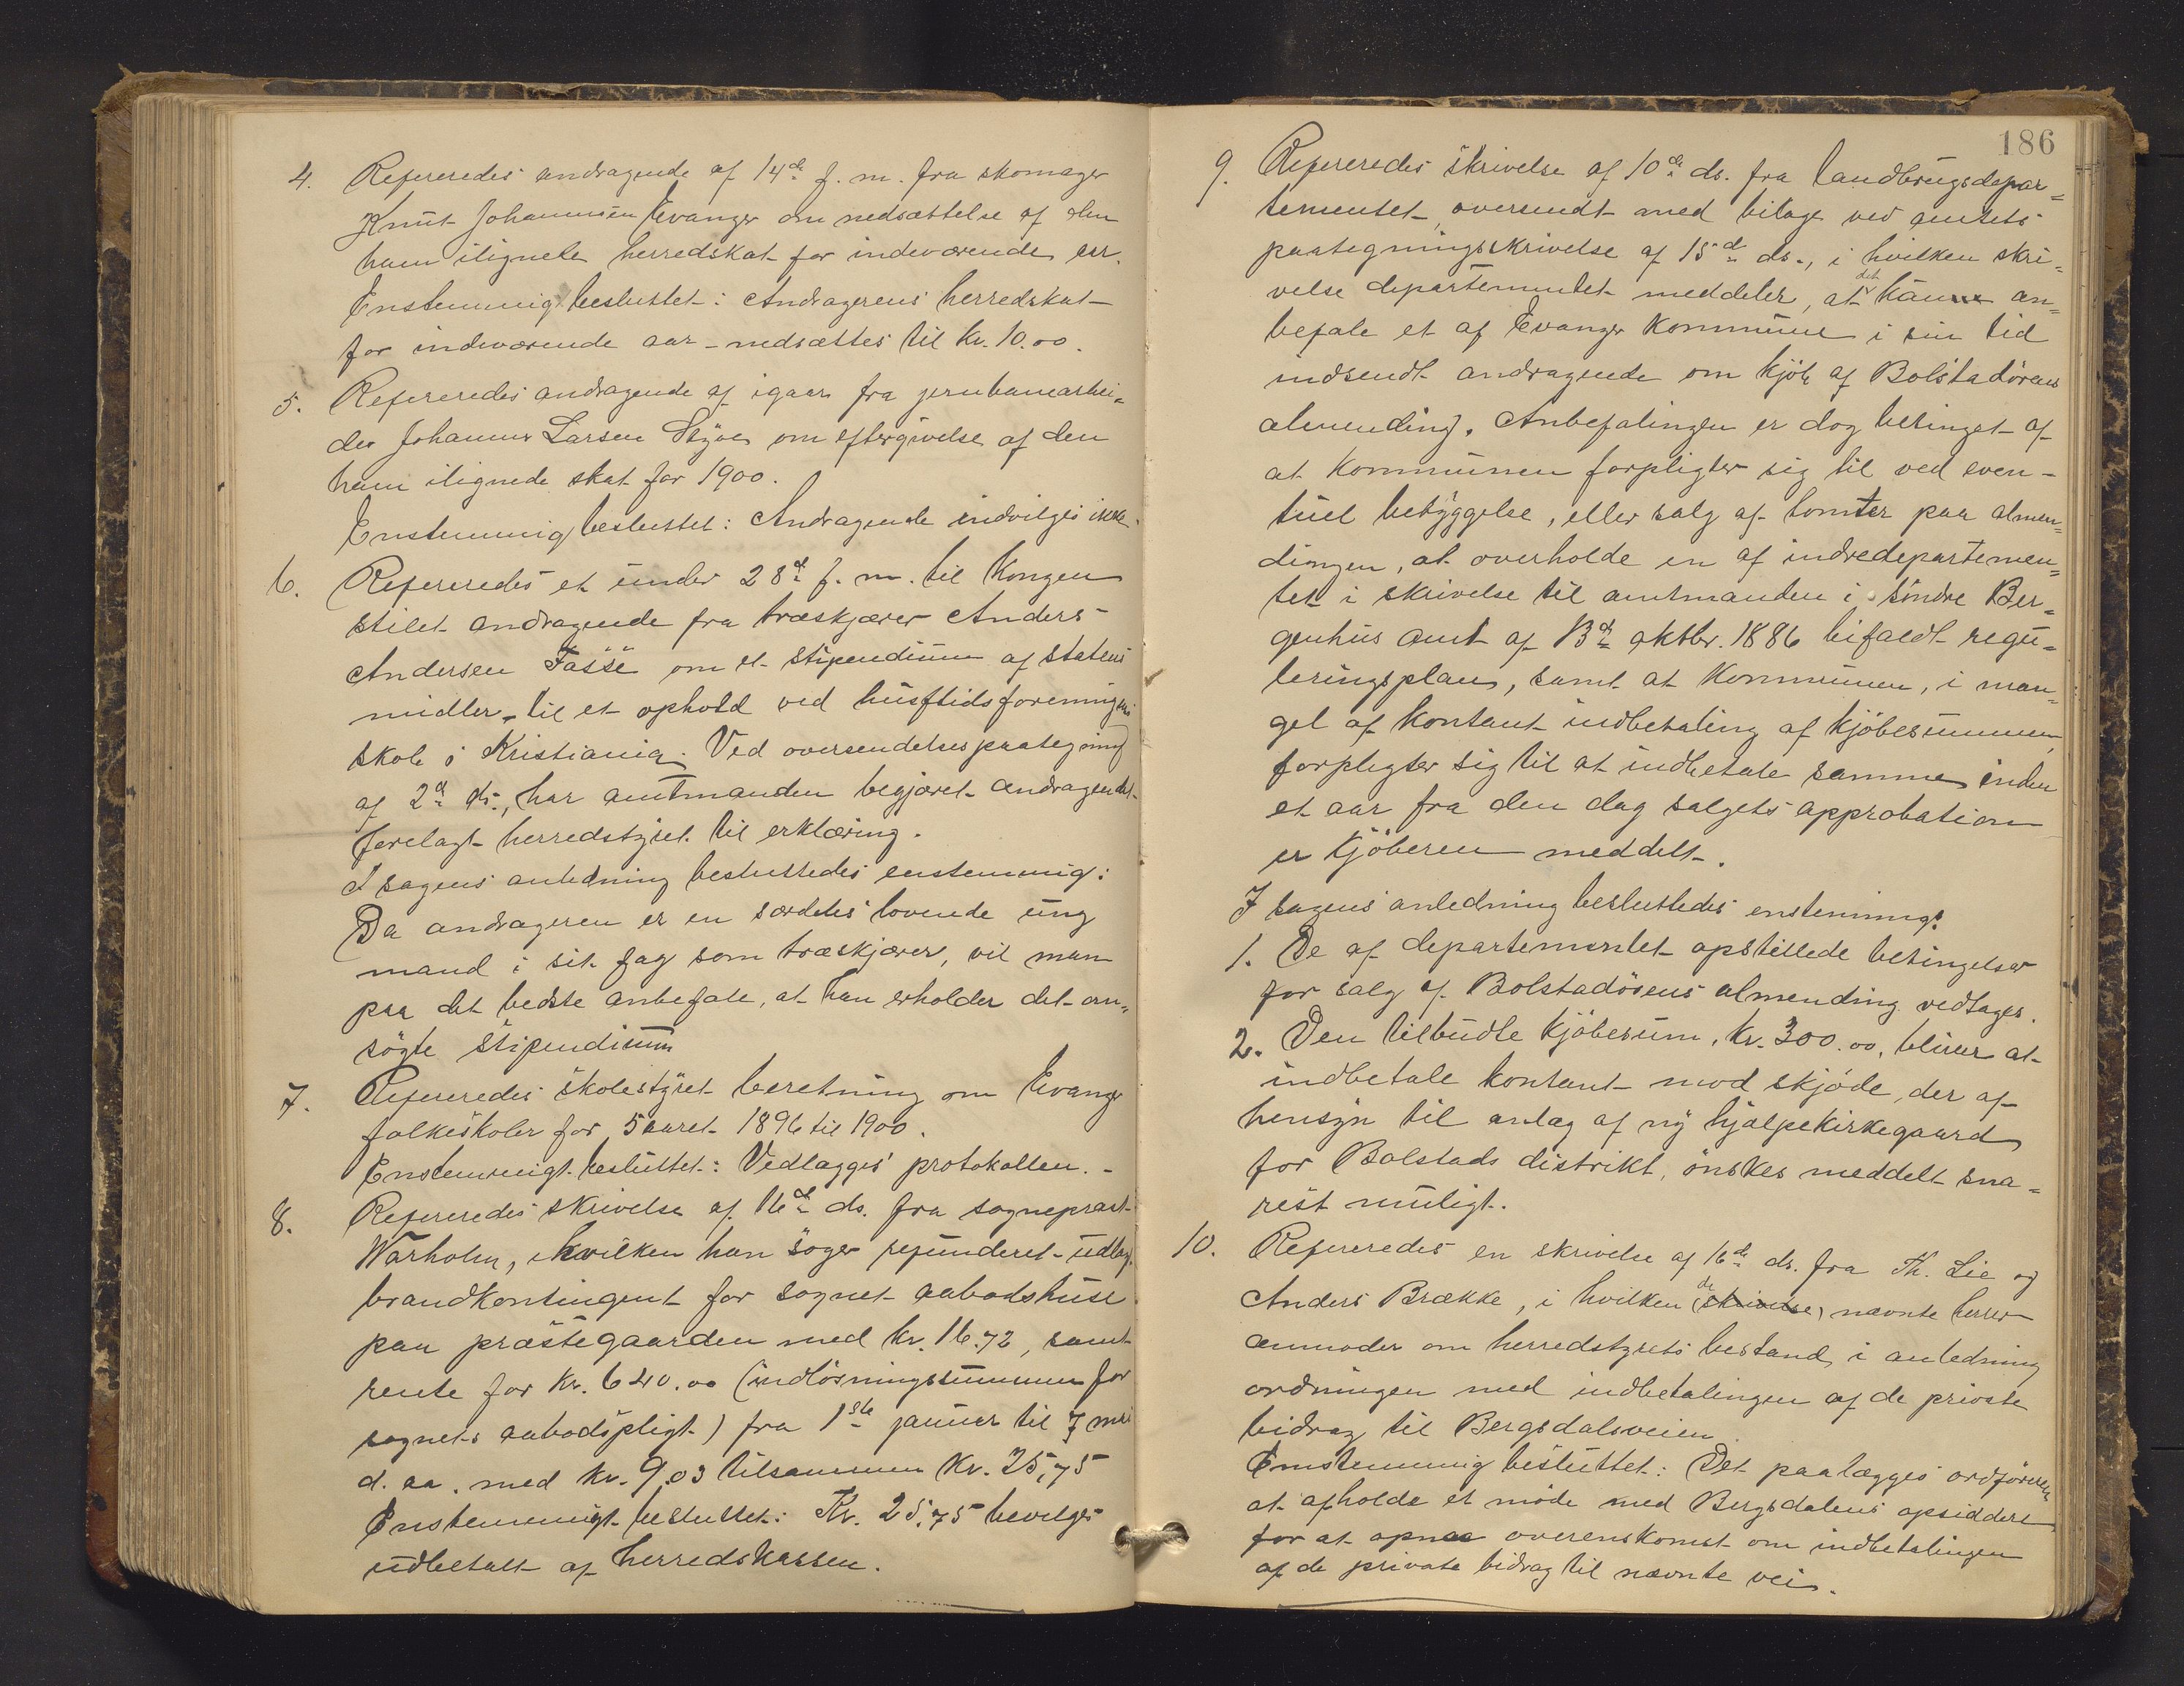 4. Refereredes andragende af 14de f. m. fra skomager
Knut Johannesen Evanger om nedsættelse af den
ham ilignete herredskat for indeværende aar.
Enstemmig besluttet: Andragerens herredskat
for indeværende aar nedsættes til kr. 10.00.
5. Refereredes andragende af igaar fra jernbanearbei=
der Johannes Larsen om eftergivelse af den
ham ilignede skat for 1900.
Enstemmig besluttet: Andragende indvilges ikke.
6. Refereredes et under 28de f. m. til Kongen
stilet andragende fra træskjærer Anders
Andersen Fasse om et stipendium af statens
midler til et ophold ved husflidsforeningens
skole i Kristiania. Ved oversendelsespaategning
af 2den ds., har amtmanden begjæret andragendet
forelagt herredstyret til erklæring.
I sagens anledning besluttedes enstemmig:
Da andrageren er en særdeles lovende ung
mand i sit fag som træskjærer, vil man
paa det bedste anbefale, at han erholder det an=
søgte stipendium
7. Refereredes skolestyret beretning om Evanger
folkeskoler for 5 aaret 1896 til 1900.
Enstemmigt besluttet: Vedlægges protokollen. -
8. Refereredes skrivelse af 16de ds. fra sogneprest
Warholm, i hvilken han søger refunderet udlagt
brandkontingent for sognet aabodshuse
paa præstegaarden med kr. 16.72, samt
rente for kr. 640.00 (indløsningssummen for
sognets aabodspligt) fra 1ste januar til 7 mai
d. aa. med kr. 9,03 tilsammen kr. 25,75
Enstemmigt besluttet: Kr. 25,75 bevilges
udbetalt af herredskassen.
186
9. Refereredes skrivelse af 10de ds. fra landbrugsdepar=
tementet, oversendt med bilage ved amtets
paategningsskrivelse af 15de ds., i hvilken skri=
velse departementet meddeler, at det kan an=
befale et af Evanger Kommune i sin tid
indsendt andragende om kjøb af Bolstadørens
almending. Anbefalingen er dog betinget af
at Kommunen forpligter sig til ved even=
tuel bebyggelse, eller salg af tomter paa almen=
dingen, at overholde en af indredepartemen=
tet i skrivelse til amtmanden i søndre Ber=
genhus amt af 13de oktbr. 1886 bifaldt regu=
leringsplan, samt at Kommunen, i man=
gel af kontant indbetaling af kjøbesummen,
forpligter sig til at indbetale samme inden
et aar fra den dag salgets approbation
er kjøberen meddelt.
I sagens anledning besluttedes enstemmigt
1. De af departementet opstillede betingelser
for salg af Bolstadørens almending vedtages.
2. Den tilbudte kjøbesum, kr. 300.00, bliver at
indbetale kontant mod skjøde, der af
hensyn til anlæg af ny hjælpekirkegaard
for Bolstads distrikt, ønskes meddelt sna=
rest muligt.
10. Refereredes en skrivelse af 16de ds. fra Th. Lie og
Anders Brække, i hvilken de (skrivelse) nævnte herrer
anmoder om herredstyrets bestand i anledning
ordningen med indbetalingen af de privste
bidrag til Bergsdalsveien.
Enstemmig besluttet: Det paalægges ordføreren
at afholde et møde med Bergsdalens opsiddere
for at opnaa overenskomst om indbetalingen
af de private bidrag til nævnte vei.